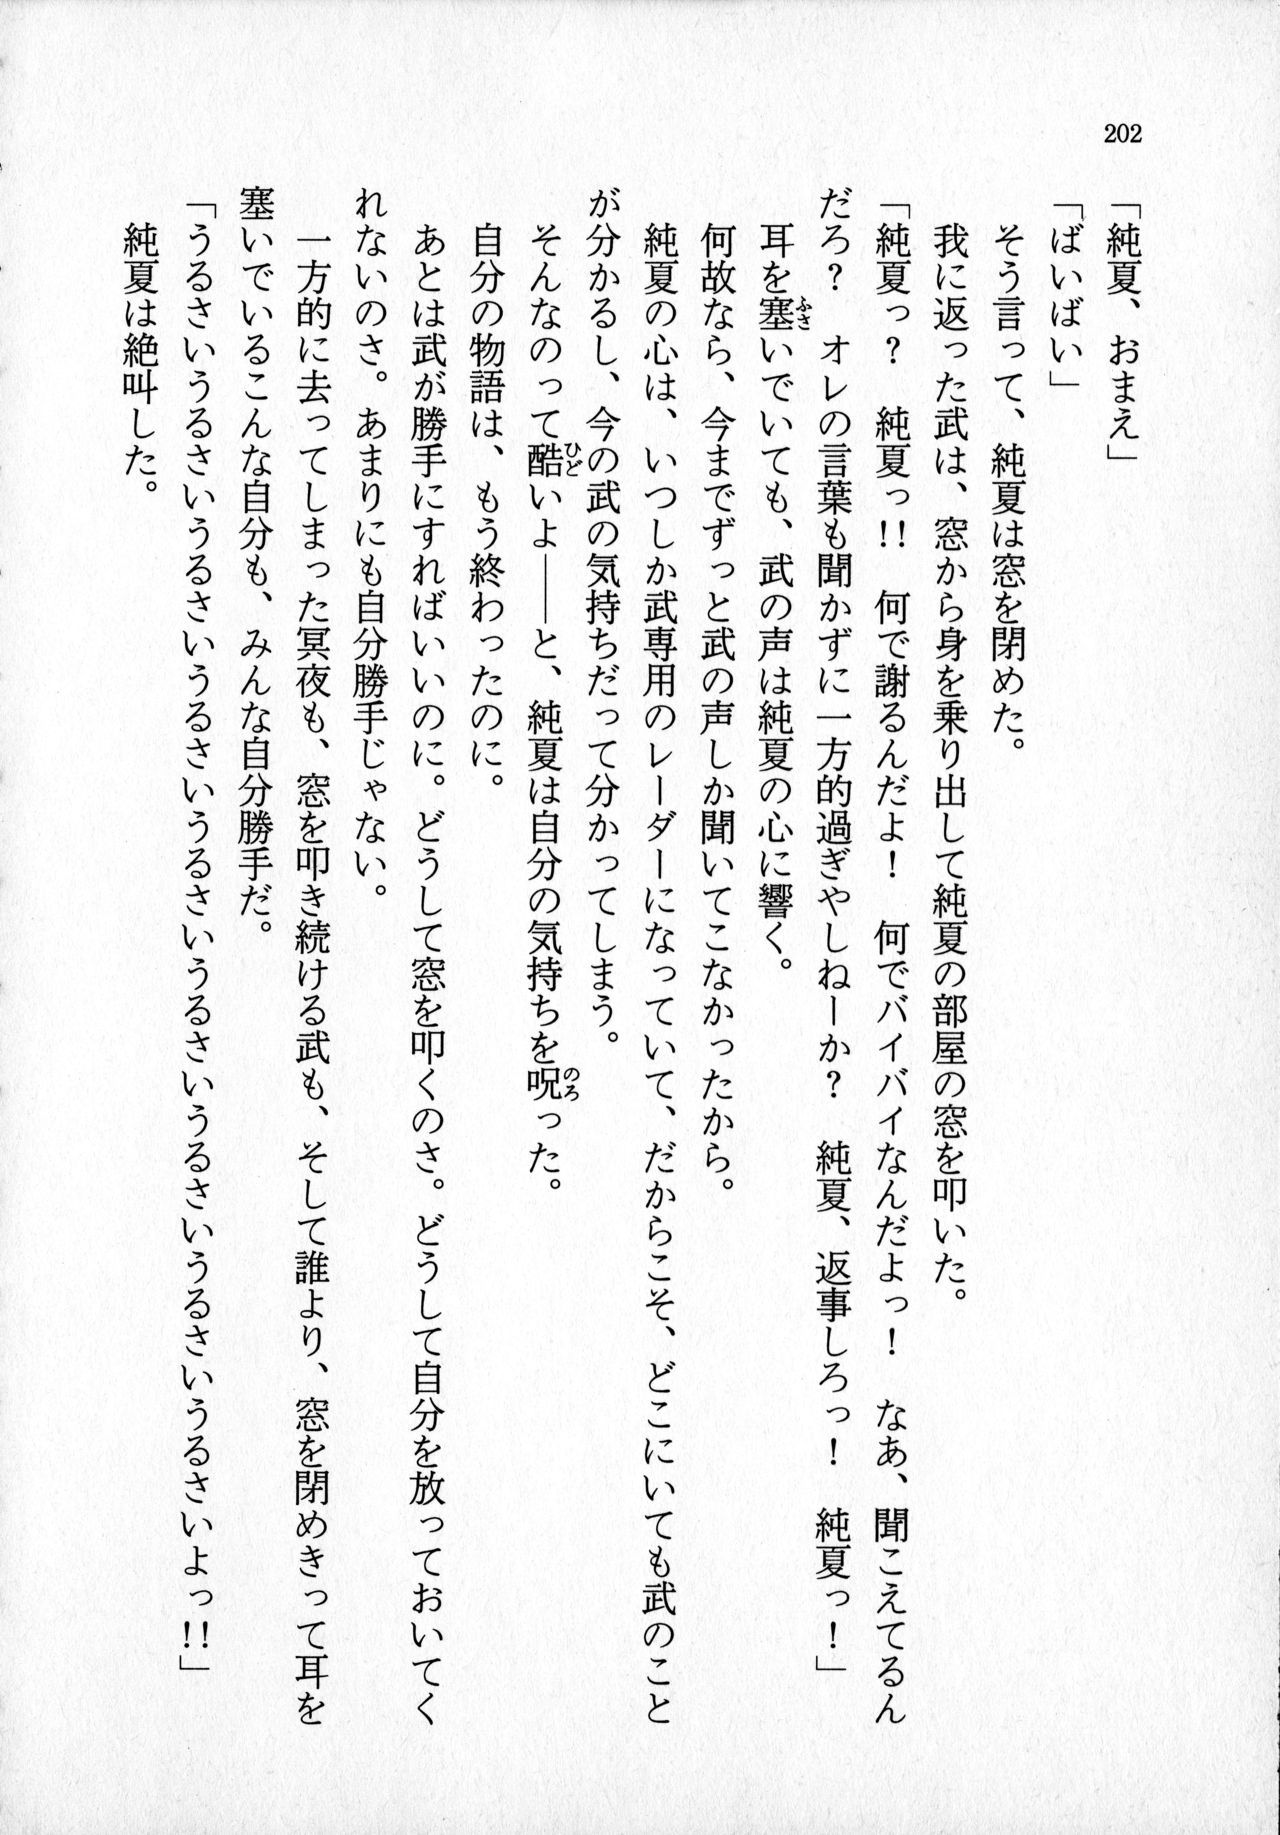 202
「純夏、おまえ」
「ばいばい」
そう言って、純夏は窓を閉めた。
我に返った武は、窓から身を乗り出して純夏の部屋の窓を叩いた。
「純夏っ？　純夏っ!!　何で謝るんだよ！　何でバイバイなんだよっ！　なあ、聞こえてるん
だろ？　オレの言葉も聞かずに一方的過ぎやしねーか？　純夏、返事しろっ！　純夏っ！」
耳を塞ふさいでいても、武の声は純夏の心に響く。
何故なら、今までずっと武の声しか聞いてこなかったから。
純夏の心は、いつしか武専用のレーダーになっていて、だからこそ、どこにいても武のこと
が分かるし、今の武の気持ちだって分かってしまう。
そんなのって酷ひどいよ――と、純夏は自分の気持ちを呪のろった。
自分の物語は、もう終わったのに。
あとは武が勝手にすればいいのに。どうして窓を叩くのさ。どうして自分を放っておいてく
れないのさ。あまりにも自分勝手じゃない。
一方的に去ってしまった冥夜も、窓を叩き続ける武も、そして誰より、窓を閉めきって耳を
塞いでいるこんな自分も、みんな自分勝手だ。
「うるさいうるさいうるさいうるさいうるさいうるさいうるさいうるさいうるさいよっ!!」
純夏は絶叫した。